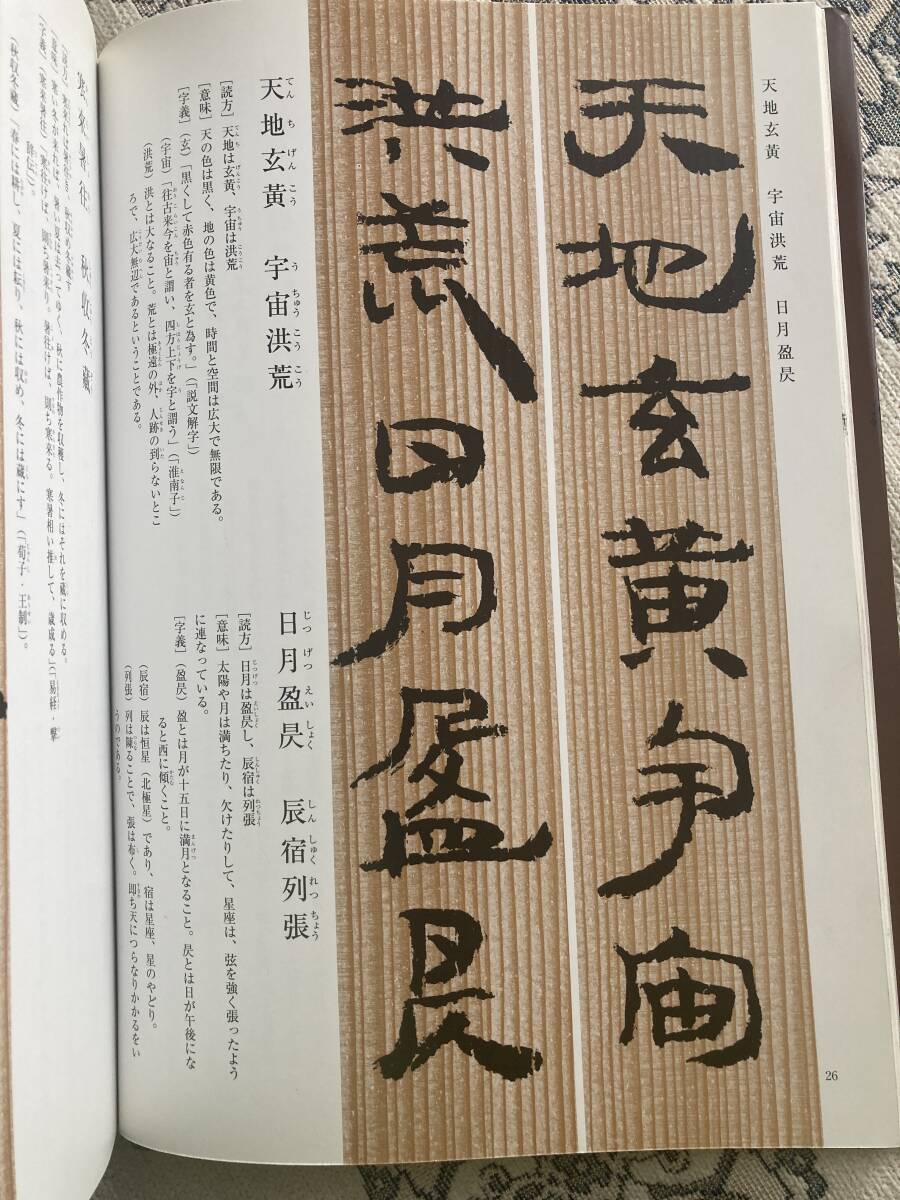 天地玄黄　宇宙洪荒　日月盈昃
天地玄黄宇宙
洪荒日月盈昃
26
てん ち げん こう　う ちゅう こう こう
天地玄黄　宇宙洪荒
［読方］天地は玄黄、宇宙は洪荒
［意味］天の色は黒く、地の色は黄色で、時間と空間は広大で無限である。
［字義］（玄）「黒くして赤色有る者を玄と為す。」（「説文解字」）
（宇宙）「往古来今を宙と謂い、四方上下を宇と謂う」（「淮南子」）
（洪荒）洪とは大なること。荒とは極遠の外、人跡の到らないとこ
ろで、広大無辺であるということである。
じつ げつ えい しょく　しん しゅく れつ ちょう
日月盈昃　辰宿列張
［読方］日月は盈昃し、辰宿は列張
［意味］太陽や月は満ちたり、欠けたりして、星座は、弦を強く張ったよう
に連なっている。
［字義］（盈昃）盈とは月が十五日に満月となること。昃とは日が午後にな
ると西に傾くこと。
（辰宿）辰は恒星（北極星）であり、宿は星座、星のやどり。
（列張）列は陳ることで、張は布く。即ち天につらなりかかるをい
うのである。
寒来暑往　秋収冬蔵
［読方］寒来れば暑往き、秋収め冬蔵す
［意味］寒い冬が来れば、暑い夏は去ってゆく、秋に農作物を収穫し、冬にはそれを蔵に収める。
［字義］（寒来暑往）「寒往けば、則ち暑来り。暑往けば、則ち寒来る。寒暑相い推して、歳成る」（「易経・繋
辞伝」）。
（秋収冬蔵）「春には耕し、夏には耘り、秋には収め、冬には蔵にす」（「荀子・王制」）。